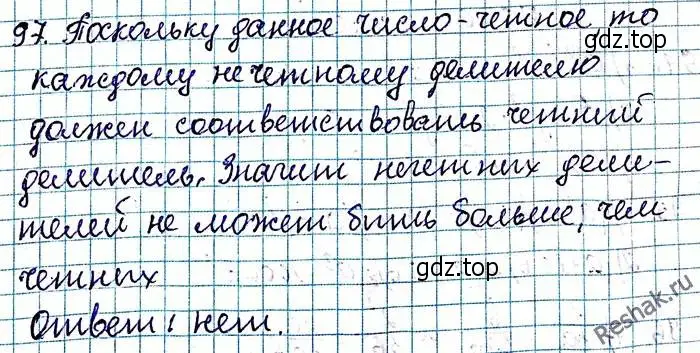 97. Поскольку данное число - четное то
каждому нечетному делителю
должен соответствовать четний
делитель. Значит нечетних дели-
телей не может бить больше, чем
четних
Ответ: нет.
гдз.top
гдз.top
Reshak.ru